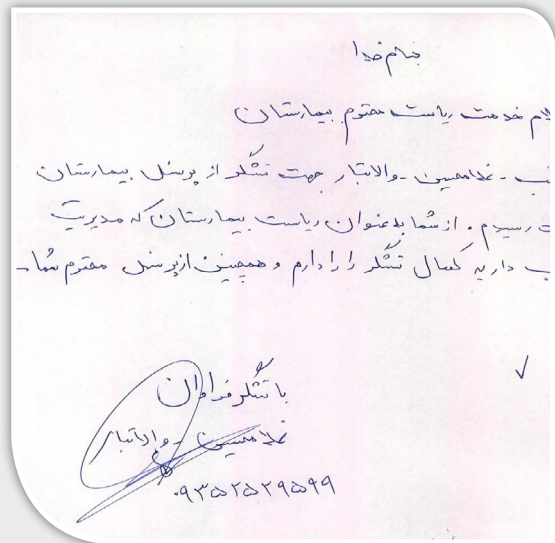 بنام خدا
لام خدمت ریاست محترم بیمارستان
نب - غلامحسین - والاتبار جهت تشکر از پرسنل بیمارستان
ت رسیدم. از شما به عنوان ریاست بیمارستان که مدیریت
ب دارید کمال تشکر را دارم و همچنین از پرسنل محترم شما-
با تشکر فراوان
غلامحسین - والاتبار
۰۹۳۵۲۵۲۹۵۹۹